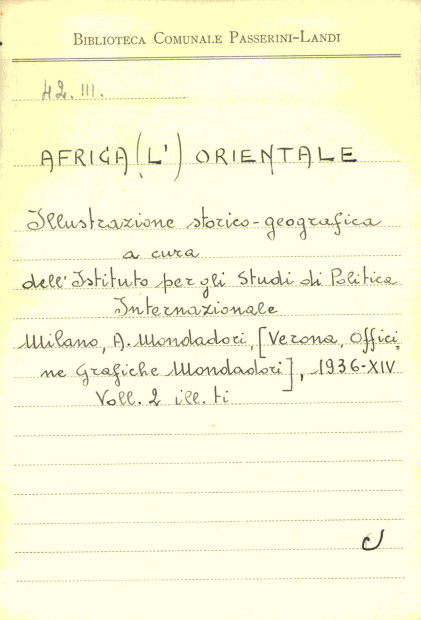 BIBLIOTECA COMUNALE PASSERINI-LANDI
42.III.
AFRICA (L') ORIENTALE
Illustrazione storico-geografica
a cura
dell'Istituto per gli Studi di Politica
Internazionale
Milano, A. Mondadori, [Verona, Offici
ne Grafiche Mondadori], 1936-XIV
Voll. 2 ill. ti